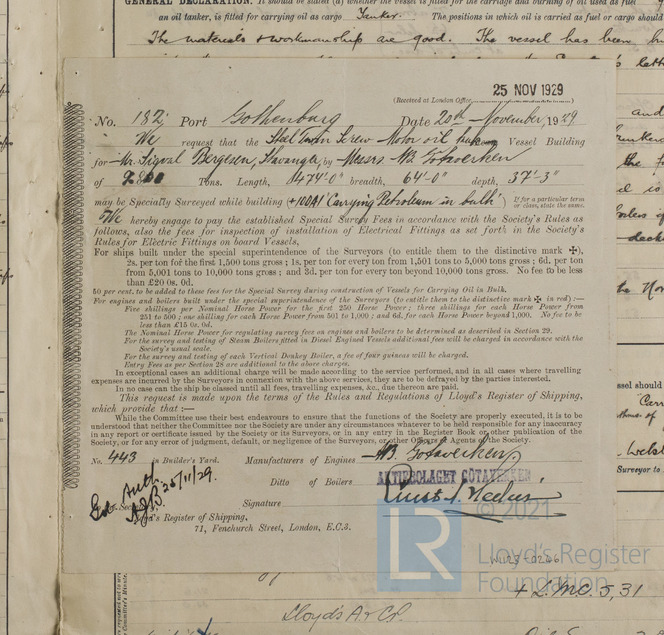 GENERAL DECLARATION. It should be stated (a) whether the vessel is fitted for the carriage and burning of oil used as fuel
an oil tanker, is fitted for carrying oil as cargo Tanker. The positions in which oil is carried as fuel or cargo should
The materials & workmanship are good. The vessel has been
25 NOV 1929
(Received at London Office)
No. 182, Port Gothenburg Date 20th November, 1929
We request that the Steel Twin Screw Motor oil Vessel Building
for Mr. Sigval Bergesen, Stavanger, by Messrs A/B Götaverken
of Tons. Length, 474'-0" breadth, 64'-0" depth, 37'-3"
may be Specially Surveyed while building (+100A1 "Carrying Petroleum in bulk") If for a particular term or class, state the same.
We hereby engage to pay the established Special Survey Fees in accordance with the Society's Rules as
follows, also the fees for inspection of installation of Electrical Fittings as set forth in the Society's
Rules for Electric Fittings on board Vessels,
For ships built under the special superintendence of the Surveyors (to entitle them to the distinctive mark ✠),
2s. per ton for the first 1,500 tons gross; 1s. per ton for every ton from 1,501 to 5,000 tons gross; 6d. per ton
from 5,001 to 10,000 tons gross; and 3d. per ton for every ton beyond 10,000 tons gross. No fee to be less
than £20 0s. 0d.
50 per cent. to be added to these fees for the Special Survey during construction of Vessels for Carrying Oil in Bulk.
For engines and boilers built under the special superintendence of the Surveyors (to entitle them to the distinctive mark ✠ in red):—
Five shillings per Nominal Horse Power for the first 250 Horse Power; three shillings for each Horse Power from
251 to 500; one shilling for each Horse Power from 501 to 1,000; and 6d. for each Horse Power beyond 1,000. No fee to be
less than £15 0s. 0d.
The Nominal Horse Power for regulating survey fees on engines and boilers to be determined as described in Section 29.
For the survey and testing of Steam Boilers fitted in Diesel Engined Vessels additional fees will be charged in accordance with the
Society's usual scale.
For the survey and testing of each Vertical Donkey Boiler, a fee of four guineas will be charged.
Entry Fees as per Section 28 are additional to the above charges.
In exceptional cases an additional charge will be made according to the service performed, and in all cases where travelling
expenses are incurred by the Surveyors in connexion with the above services, they are to be defrayed by the parties interested.
In no case can the ship be classed until all fees, travelling expenses, &c., due thereon are paid.
This request is made upon the terms of the Rules and Regulations of Lloyd's Register of Shipping,
which provide that:—
While the Committee use their best endeavours to ensure that the functions of the Society are properly executed, it is to be
understood that neither the Committee nor the Society are under any circumstances whatever to be held responsible for any inaccuracy
in any report or certificate issued by the Society or its Surveyors, or in any entry in the Register Book or other publication of the
Society, or for any error of judgment, default, or negligence of the Surveyors, or other Officers or Agents of the Society.
No. 443 in Builder's Yard. Manufacturers of Engines A/B Götaverken
Ditto of Boilers AKTIEBOLAGET GÖTAVERKEN
Signature
25/11/29.
Lloyd's Register of Shipping,
71, Fenchurch Street, London, E.C.3.
© 2021
LR
Lloyd's Register
Foundation
W1125-0246
+ LMC 5,31
Lloyd's A & CP.